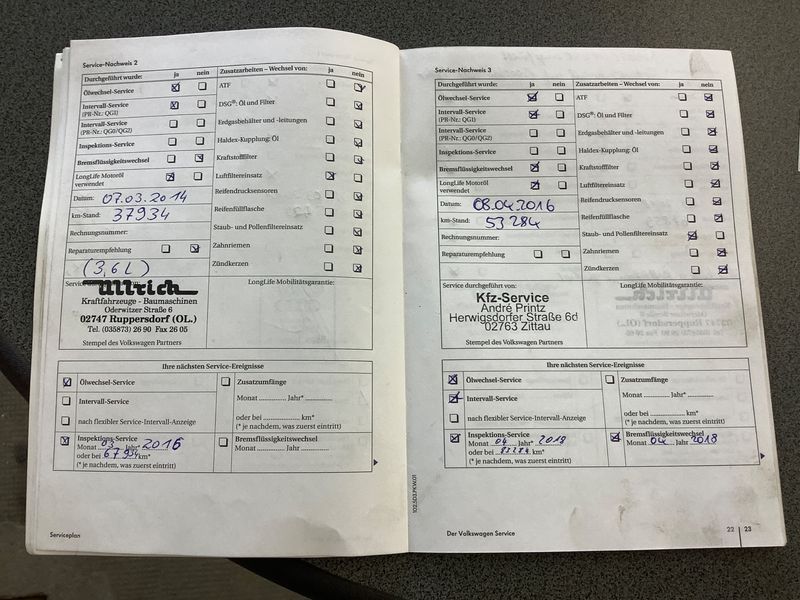 Service-Nachweis 2
Durchgeführt wurde: ja nein
Ölwechsel-Service
Intervall-Service
(PR-Nr.: QG1)
Intervall-Service
(PR-Nr.: QG0/QG2)
Inspektions-Service
Bremsflüssigkeitswechsel
LongLife Motoröl
verwendet
Datum: 07.03.2014
km-Stand: 37934
Rechnungsnummer:
Reparaturempfehlung
(3,6L)
Zusatzarbeiten – Wechsel von: ja nein
ATF
DSG®: Öl und Filter
Erdgasbehälter und -leitungen
Haldex-Kupplung: Öl
Kraftstofffilter
Luftfiltereinsatz
Reifendrucksensoren
Reifenfüllflasche
Staub- und Pollenfiltereinsatz
Zahnriemen
Zündkerzen
Ullrich
Kraftfahrzeuge - Baumaschinen
Oderwitzer Straße 6
02747 Ruppersdorf (OL.)
Tel. (035873) 26 90 Fax 26 05
Stempel des Volkswagen Partners
LongLife Mobilitätsgarantie:
Ihre nächsten Service-Ereignisse
Ölwechsel-Service
Intervall-Service
nach flexibler Service-Intervall-Anzeige
Inspektions-Service
Monat 03 Jahr* 2016
oder bei 67934 km*
(* je nachdem, was zuerst eintritt)
Zusatzumfänge
Monat Jahr*
oder bei km*
(* je nachdem, was zuerst eintritt)
Bremsflüssigkeitswechsel
Monat Jahr
Serviceplan
Service-Nachweis 3
Durchgeführt wurde: ja nein
Ölwechsel-Service
Intervall-Service
(PR-Nr.: QG1)
Intervall-Service
(PR-Nr.: QG0/QG2)
Inspektions-Service
Bremsflüssigkeitswechsel
LongLife Motoröl
verwendet
Datum: 08.04.2016
km-Stand: 53284
Rechnungsnummer:
Reparaturempfehlung
Zusatzarbeiten – Wechsel von: ja nein
ATF
DSG®: Öl und Filter
Erdgasbehälter und -leitungen
Haldex-Kupplung: Öl
Kraftstofffilter
Luftfiltereinsatz
Reifendrucksensoren
Reifenfüllflasche
Staub- und Pollenfiltereinsatz
Zahnriemen
Zündkerzen
Service durchgeführt von:
Kfz-Service
André Printz
Herwigsdorfer Straße 6d
02763 Zittau
Stempel des Volkswagen Partners
LongLife Mobilitätsgarantie:
Ihre nächsten Service-Ereignisse
Ölwechsel-Service
Intervall-Service
nach flexibler Service-Intervall-Anzeige
Inspektions-Service
Monat 04 Jahr* 2018
oder bei 83284 km*
(* je nachdem, was zuerst eintritt)
Zusatzumfänge
Monat Jahr*
oder bei km*
(* je nachdem, was zuerst eintritt)
Bremsflüssigkeitswechsel
Monat 04 Jahr 2018
Der Volkswagen Service
22 | 23